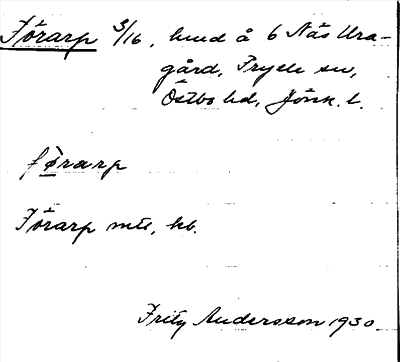 Förarp 3/16, hmd å 6 Näs Ura-
gård, Tryde sn,
Östbo hd, Jönk. l.
førarp
Förarp mtl, kb.
Fritz Andersson 1930